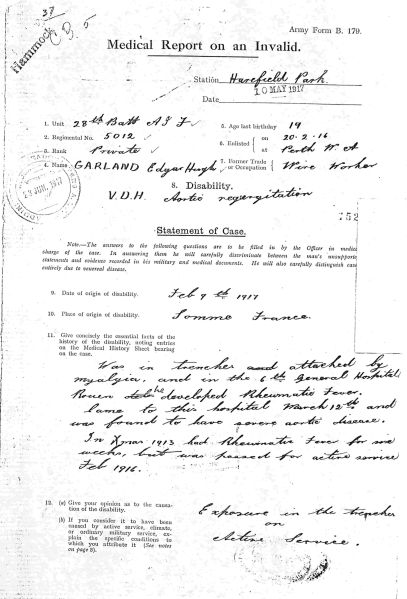 37
Hammock
C B 5
Army Form B. 179.
Medical Report on an Invalid.
Station Harefield Park.
Date 10 MAY 1917
1. Unit 28th Batt A I F
2. Regimental No. 5012
3. Rank Private
4. Name GARLAND Edgar Hugh
5. Age last birthday 19
6. Enlisted { on 20-2-16
at Perth W A
7. Former Trade or Occupation } Wire Worker
8. Disability.
V.D.H. Aortic regurgitation
752
13 JUN. 1917
Statement of Case.
Note.—The answers to the following questions are to be filled in by the Officer in medic
charge of the case. In answering them he will carefully discriminate between the man's unsuppor
statements and evidence recorded in his military and medical documents. He will also carefully distinguish case
entirely due to venereal disease.
9. Date of origin of disability. Feb 9th 1917
10. Place of origin of disability. Somme France.
11. Give concisely the essential facts of the
history of the disability, noting entries
on the Medical History Sheet bearing
on the case.
Was in trenches and attacked by
myalgia, and in the 6th General Hospital
Rouen he developed Rheumatic Fever.
Came to this hospital March 12th and
was found to have severe aortic disease.
In Xmas 1913 had Rheumatic Fever for six
weeks, but was passed for active service
Feb 1916.
12. (a) Give your opinion as to the causa-
tion of the disability.
(b) If you consider it to have been
caused by active service, climate,
or ordinary military service, ex-
plain the specific conditions to
which you attribute it (See notes
on page 8).
Exposure in the trenches
on
Active Service.